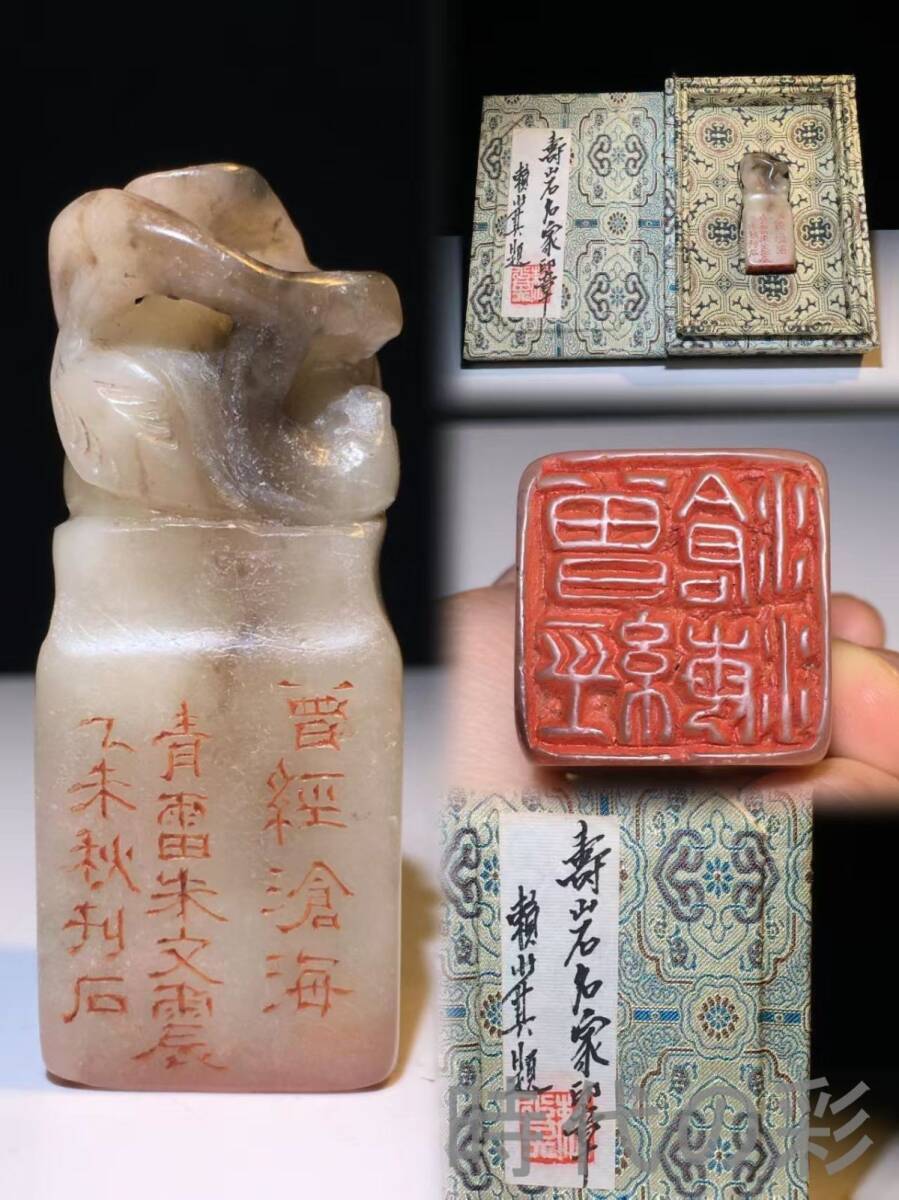 曾經滄海
青雷朱文震
乙未秋刊石
壽山石名家印章
賴少其題
曾經滄海
壽山石名家印章
賴少其題
時代の彩